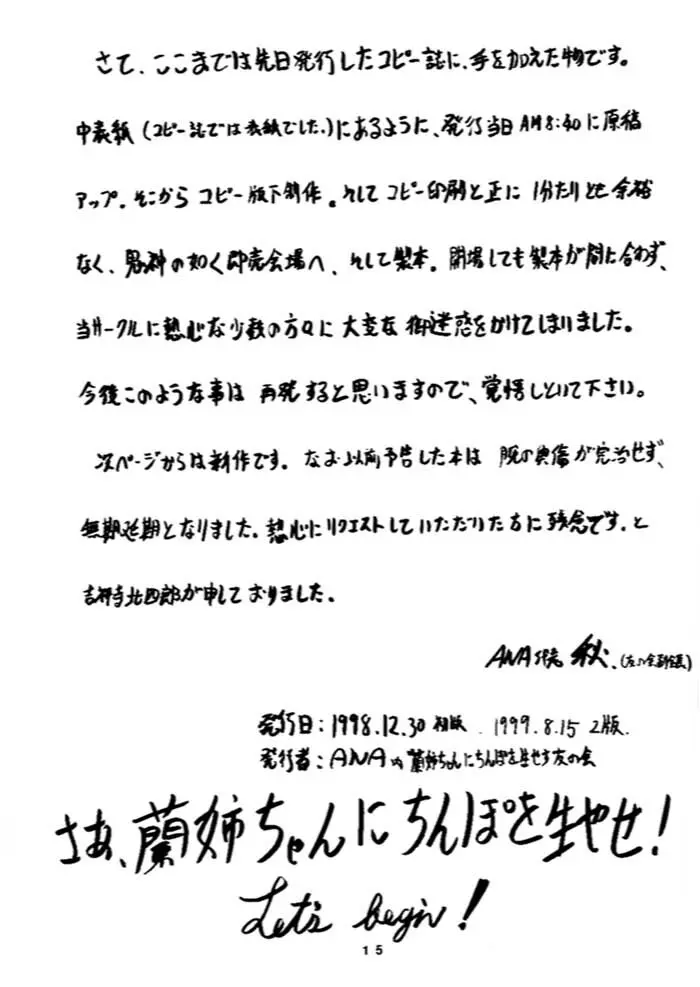 さて、ここまでは先日発行したコピー誌に、手を加えた物です。
中表紙(コピー誌では表紙でした。)にあるように、発行当日AM8:40に原稿
アップ。そこからコピー版下制作。そしてコピー印刷と正に1分たりとも余裕
なく、鬼神の如く即売会場へ、そして製本。開場しても製本が間に合わず、
当サークルに熱心な少数の方々に大変な御迷惑をかけてしまいました。
今後このような事は再発すると思いますので、覚悟しといて下さい。
次ページからは新作です。なお以前予告した本は腕の が完治せず、
無期延期となりました。熱心にリクエストしていただいた方に残念です。と
吉祥寺北四郎が申しておりました。
ANA 秋.
発行日:1998.12.30 初版. 1999.8.15 2版.
発行者:ANA内 蘭姉ちゃんにちんぽを生やす友の会
さあ、蘭姉ちゃんにちんぽを生やせ!
Let's begin!
15